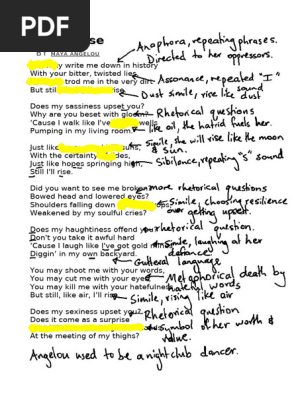 PDF
se
BY MAYA ANGELOU
y write me down in history
Anaphora, repeating phrases.
Directed to her oppressors.
With your bitter, twisted lies,
trod me in the very dirt
Assonance, repeated "I" sound
But still
Dust simile, rise like dust
Does my sassiness upset you?
Why are you beset with gloom?
Rhetorical questions
'Cause I walk like I've wells
like oil, the hatrid fuels her.
Pumping in my living room.
Just like suns,
Simile, she will rise like the moon & Sun.
With the certainty des,
Just like hopes springing high,
Sibilance, repeating "S" sound
Still I'll rise.
Did you want to see me broken?
more rhetorical questions
Bowed head and lowered eyes?
Shoulders falling down
Simile, choosing resilience over getting upset.
Weakened by my soulful cries?
Does my haughtiness offend you?
rhetorical question.
Don't you take it awful hard
'Cause I laugh like I've got gold mines
Simile, laughing at her defiance
Diggin' in my own backyard.
Gutteral Language
You may shoot me with your words,
You may cut me with your eyes,
Metaphorical death by hateful words
You may kill me with your hatefulness,
But still, like air, I'll rise.
Simile, rising like air
Does my sexiness upset you?
Rhetorical question
Does it come as a surprise
Symbol of her worth & value.
At the meeting of my thighs?
Angelou used to be a nightclub dancer.